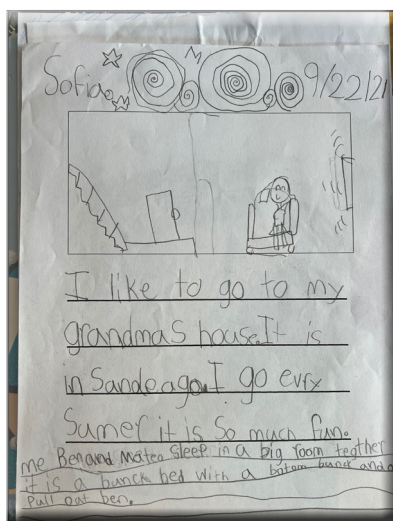 Sofia 9/22/21
I like to go to my
grandmas house. It is
in Sandeago. I go evry
Sumer it is so much fun.
me Ben and Mateo Sleep in a big room tegther
it is a bunck bed with a botom bunck and a
Pull out ben.